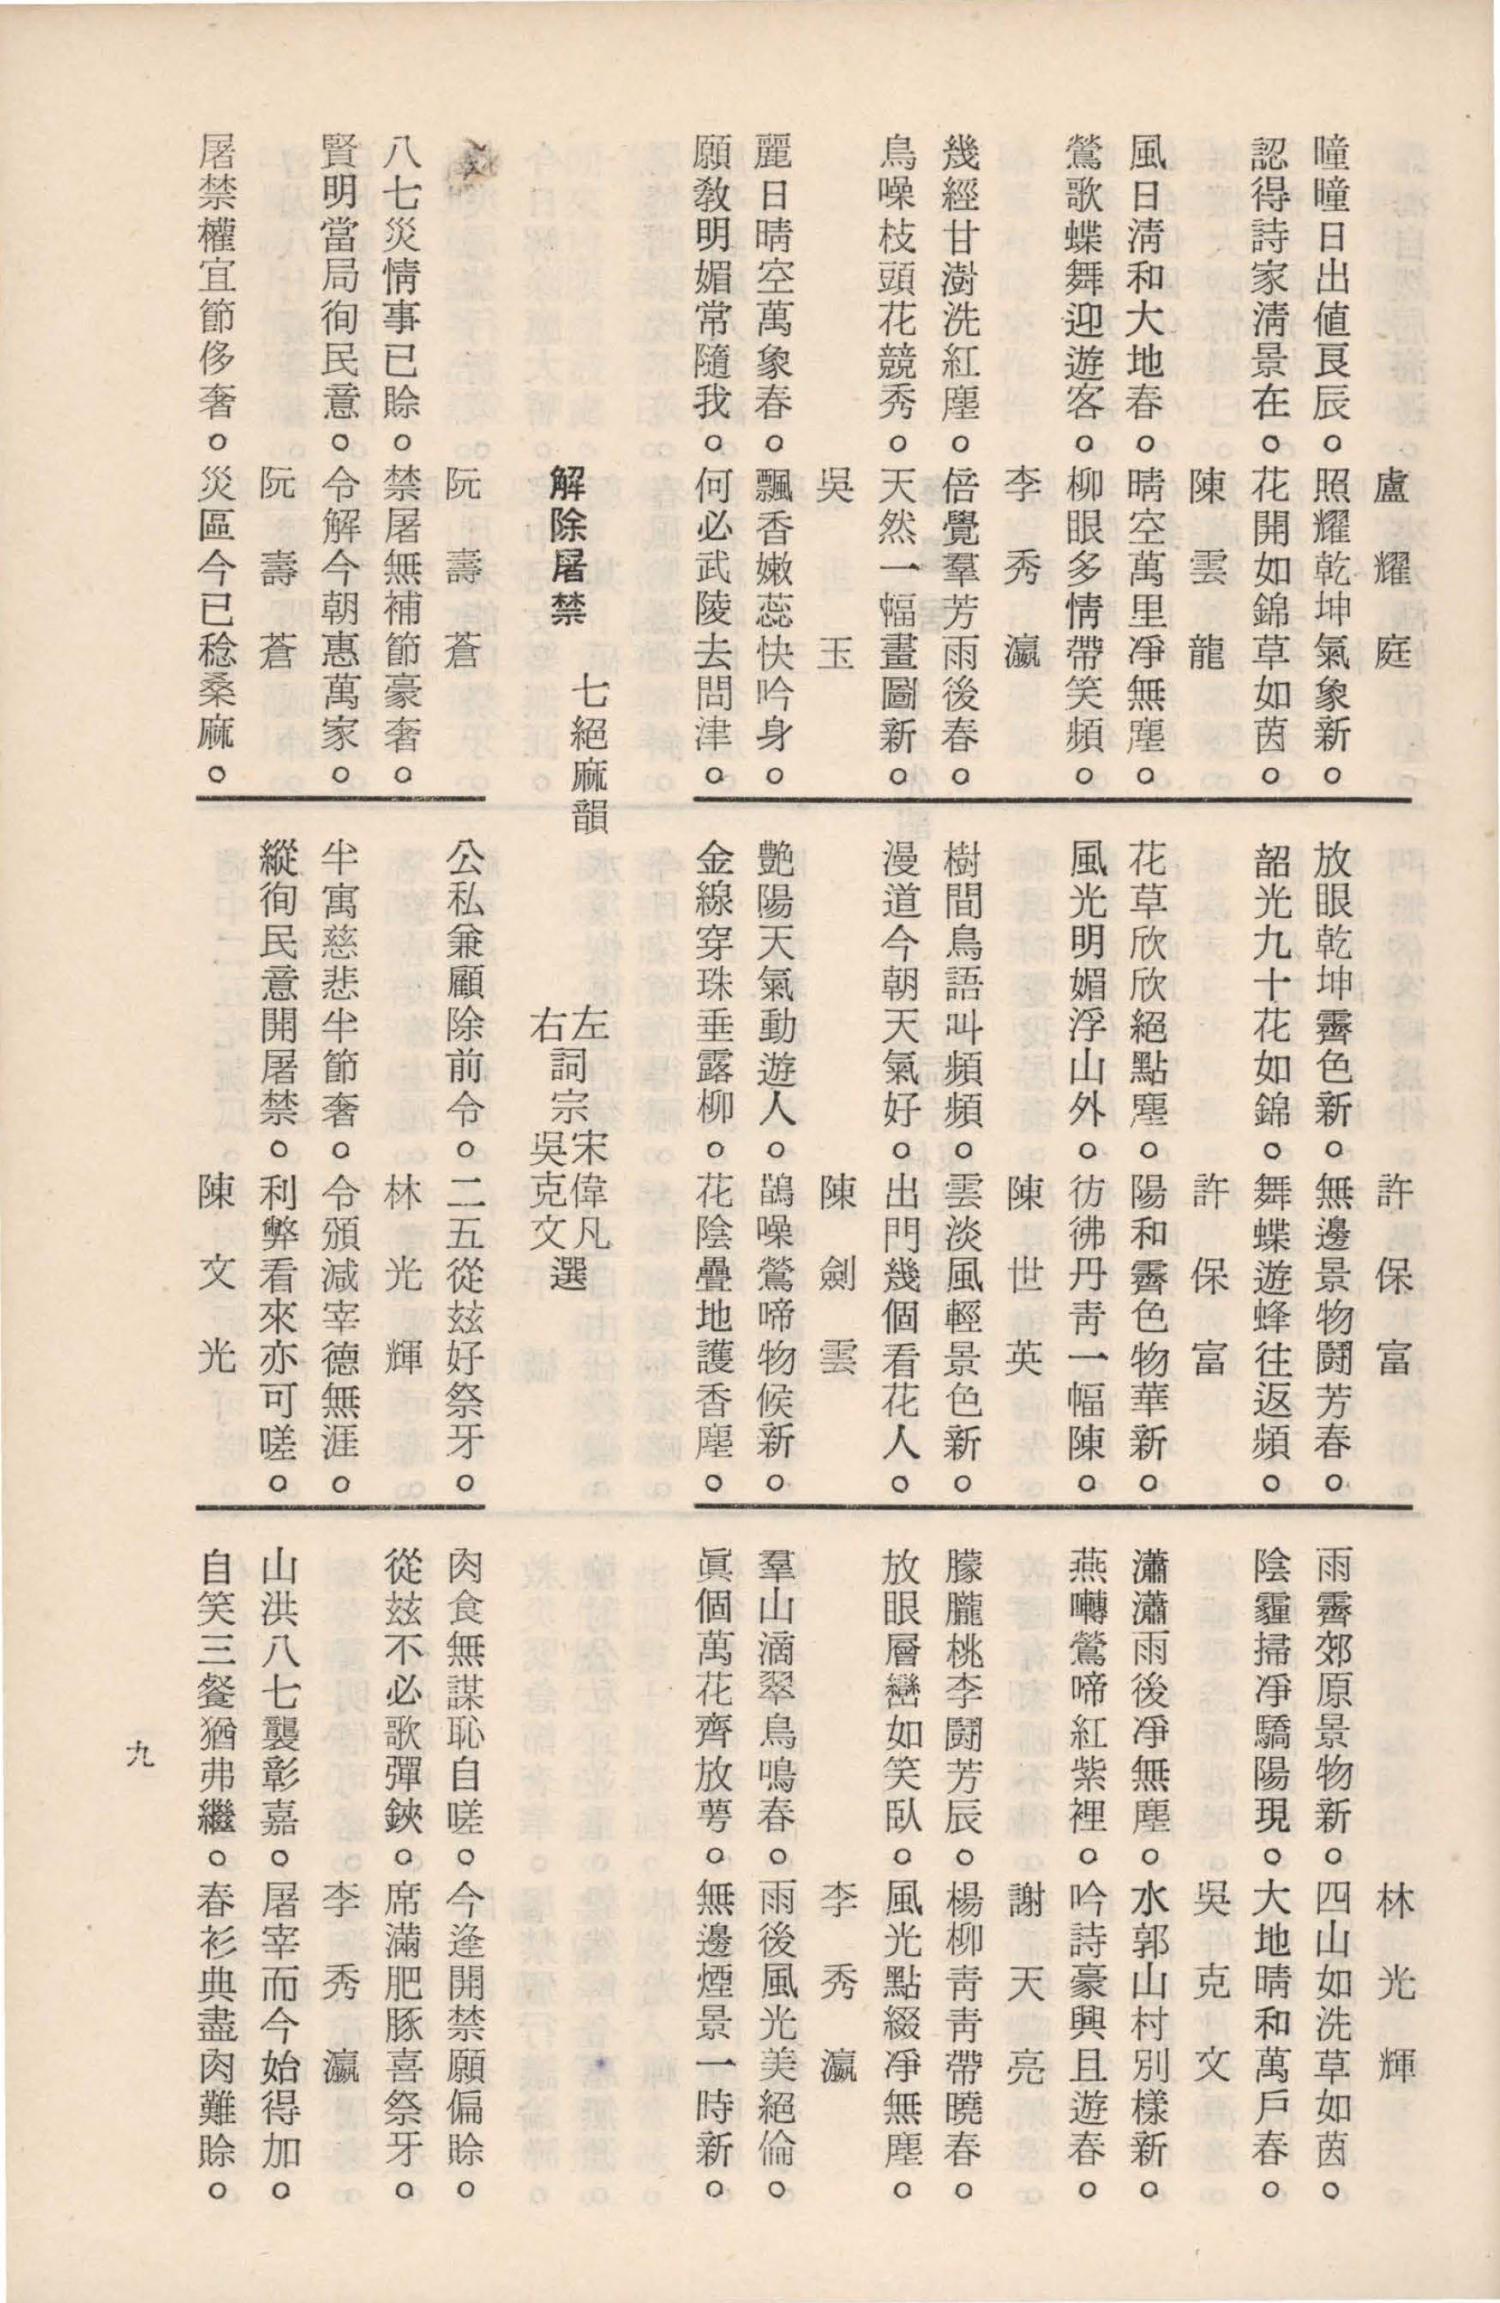 盧耀庭
曈曈日出値良辰。照耀乾坤氣象新。
認得詩家淸景在。花開如錦草如茵。
陳雲龍
風日淸和大地春。晴空萬里淨無塵。
鶯歌蝶舞迎遊客。柳眼多情帶笑頻。
李秀瀛
幾經甘澍洗紅塵。倍覺羣芳雨後春。
鳥噪枝頭花競秀。天然一幅畫圖新。
吳玉
麗日晴空萬象春。飄香嫩蕊快吟身。
願敎明媚常隨我。何必武陵去問津。
許保富
放眼乾坤霽色新。無邊景物鬪芳春。
韶光九十花如錦。舞蝶遊蜂往返頻。
許保富
花草欣欣絕點塵。陽和霽色物華新。
風光明媚浮山外。彷彿丹靑一幅陳。
陳世英
樹間鳥語叫頻頻。雲淡風輕景色新。
漫道今朝天氣好。出門幾個看花人。
陳劍雲
艷陽天氣動遊人。鵲噪鶯啼物候新。
金線穿珠垂露柳。花陰疊地護香塵。
林光輝
雨霽郊原景物新。四山如洗草如茵。
陰霾掃淨驕陽現。大地晴和萬戶春。
吳克文
瀟瀟雨後淨無塵。水郭山村別樣新。
燕囀鶯啼紅紫裡。吟詩豪興且遊春。
謝天亮
朦朧桃李鬪芳辰。楊柳靑靑帶曉春。
放眼層巒如笑臥。風光點綴淨無塵。
李秀瀛
羣山滴翠鳥鳴春。雨後風光美絕倫。
眞個萬花齊放萼。無邊煙景一時新。
解除屠禁 七絕麻韻
左詞宗宋偉凡選
右詞宗吳克文選
阮壽蒼
八七災情事已賒。禁屠無補節豪奢。
賢明當局徇民意。令解今朝惠萬家。
阮壽蒼
屠禁權宜節侈奢。災區今已稔桑麻。
公私兼顧除前令。二五從玆好祭牙。
林光輝
半寓慈悲半節奢。令頒減宰德無涯。
縱徇民意開屠禁。利弊看來亦可嗟。
陳文光
肉食無謀恥自嗟。今逢開禁願偏賒。
從玆不必歌彈鋏。席滿肥豚喜祭牙。
李秀瀛
山洪八七襲彰嘉。屠宰而今始得加。
自笑三餐猶弗繼。春衫典盡肉難賒。
九